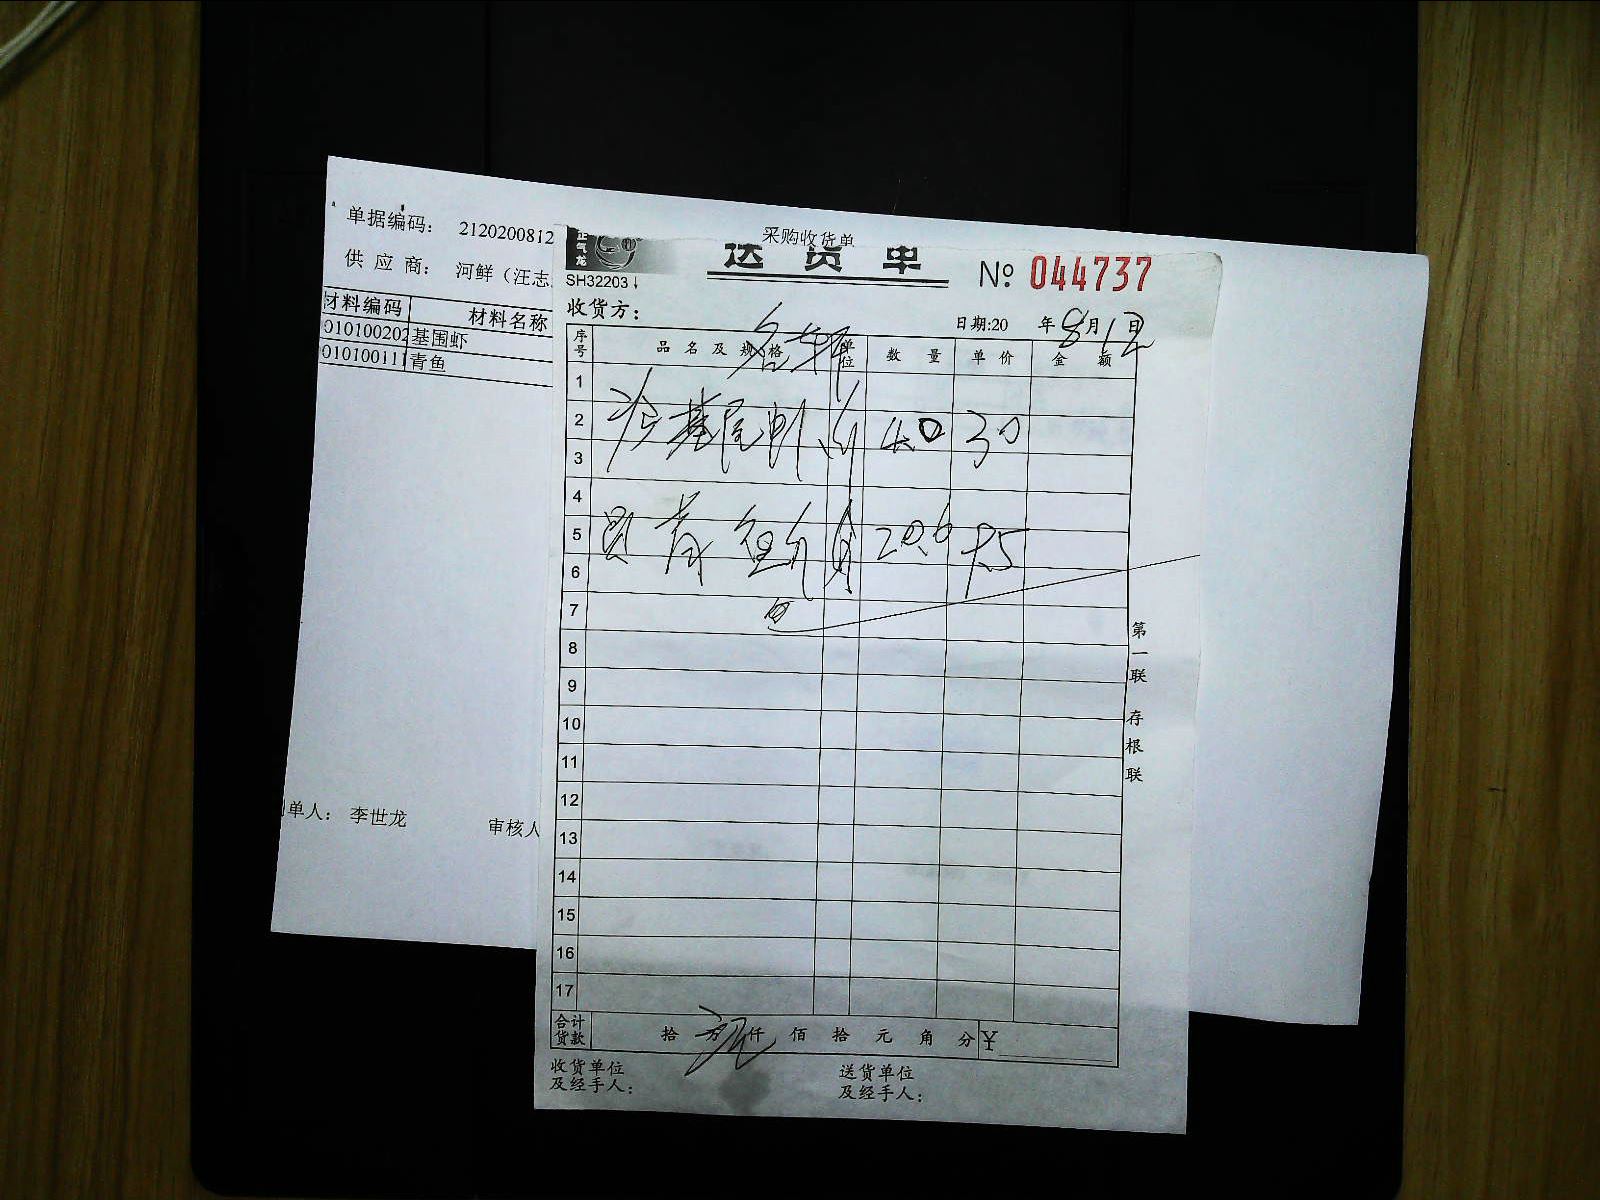 采购收货单
单据编码： 2120200812
供 应 商： 河鲜（汪志
材料编码 材料名称
010100202 基围虾
010100111 青鱼
单人： 李世龙 审核人
正气龙
送 货 单
№ 044737
SH32203
收货方：
日期:20 年8月12日
序号 品 名 及 规 格 单位 数 量 单 价 金 额
1
2 基尾虾 4.0 30
3
4
5 青鱼 20.6 7.5
6
7
8
9
10
11
12
13
14
15
16
17
合计货款 拾 万 仟 佰 拾 元 角 分 ¥
收货单位及经手人：
送货单位及经手人：
第一联 存根联